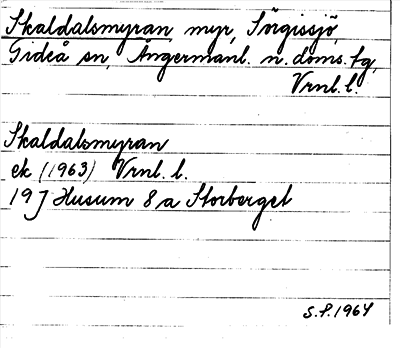 Skaldalsmyran, myr, Sörgissjö,
Gideå sn, Ångermanl. n. doms. tg,
Vrnl. l.
Skaldalsmyran
ek (1963) Vrnl. l.
19 J Husum 8 a Storberget
S.P. 1964